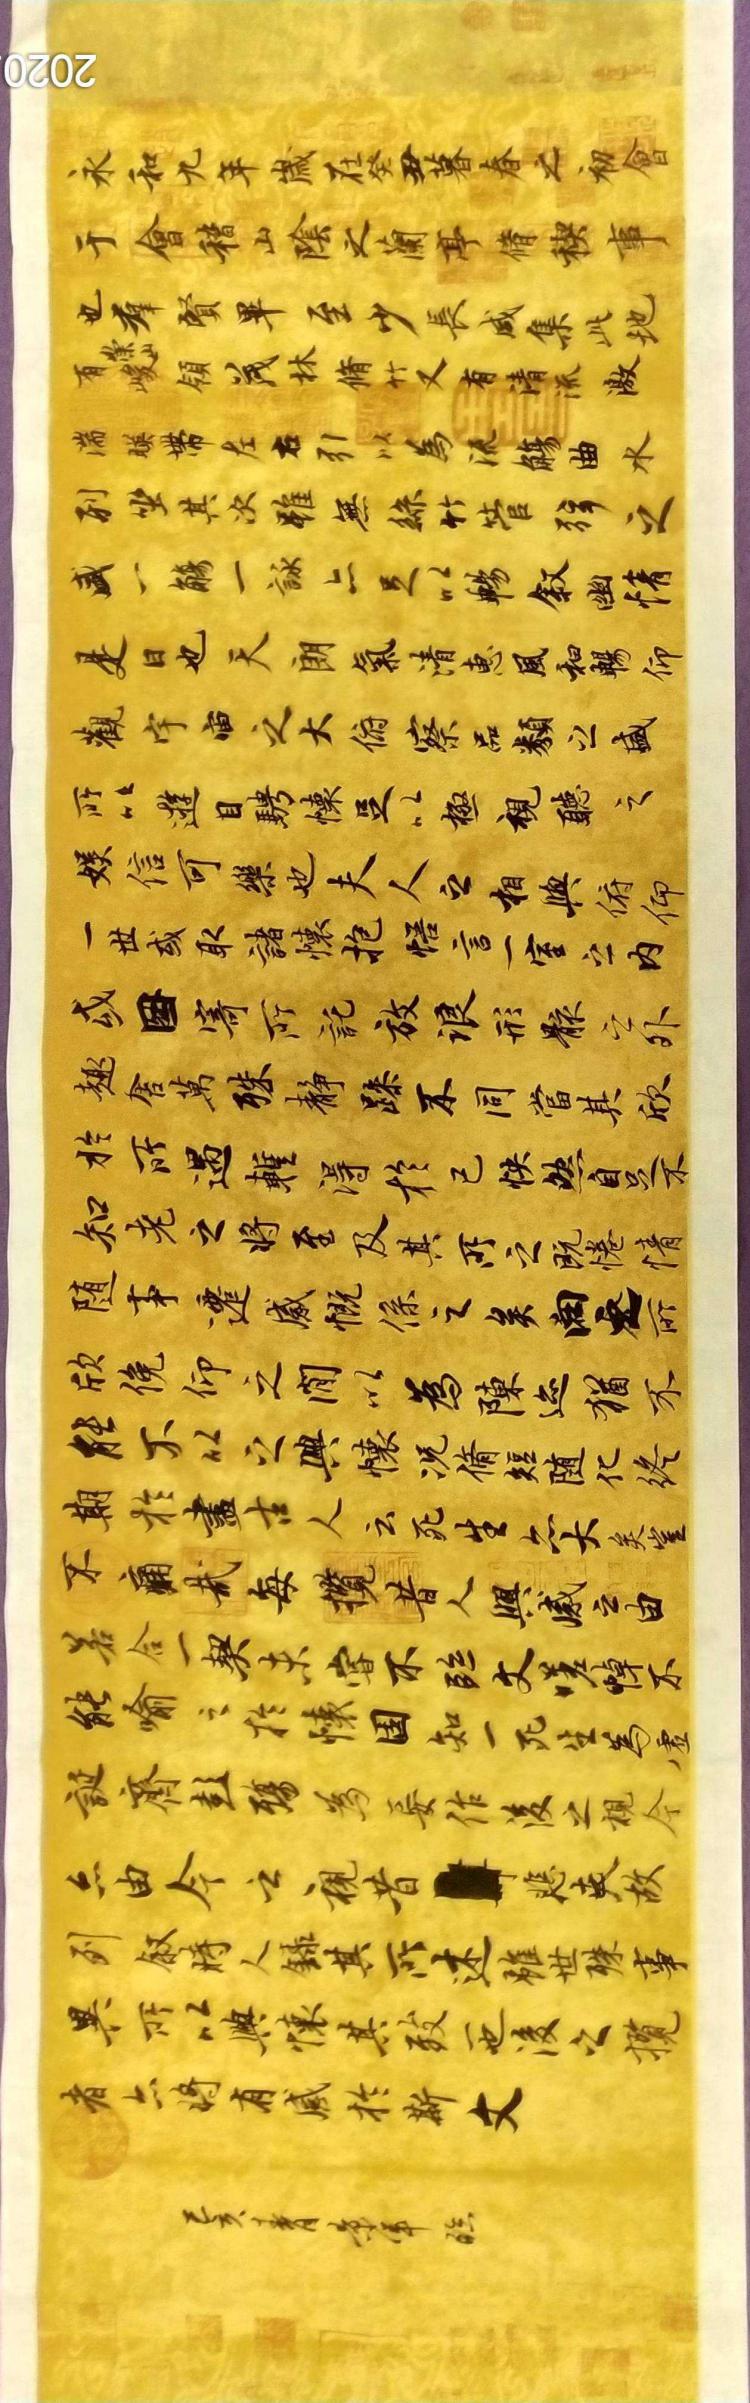 2020
永和九年歲在癸丑暮春之初會
于會稽山陰之蘭亭脩稧事
也羣賢畢至少長咸集此地
有崇山峻領茂林脩竹又有清流激
湍暎帶左右引以為流觴曲水
列坐其次雖無絲竹管弦之
盛一觴一詠亦足以暢敘幽情
是日也天朗氣清惠風和暢仰
觀宇宙之大俯察品類之盛
所以遊目騁懷足以極視聽之
娛信可樂也夫人之相與俯仰
一世或取諸懷抱悟言一室之內
或因寄所託放浪形骸之外
趣舍萬殊靜躁不同當其欣
於所遇輒得於己怏然自足不
知老之將至及其所之既惓情
隨事遷感慨係之矣向之所
欣俛仰之閒以為陳迹猶不
能不以之興懷況脩短隨化終
期於盡古人云死生亦大矣豈
不痛哉每攬昔人興感之由
若合一契未嘗不臨文嗟悼不
能喻之於懷固知一死生為虛
誕齊彭殤為妄作後之視今
亦由今之視昔悲夫故
列敘時人錄其所述雖世殊事
異所以興懷其致一也後之攬
者亦將有感於斯文
己亥春月臨